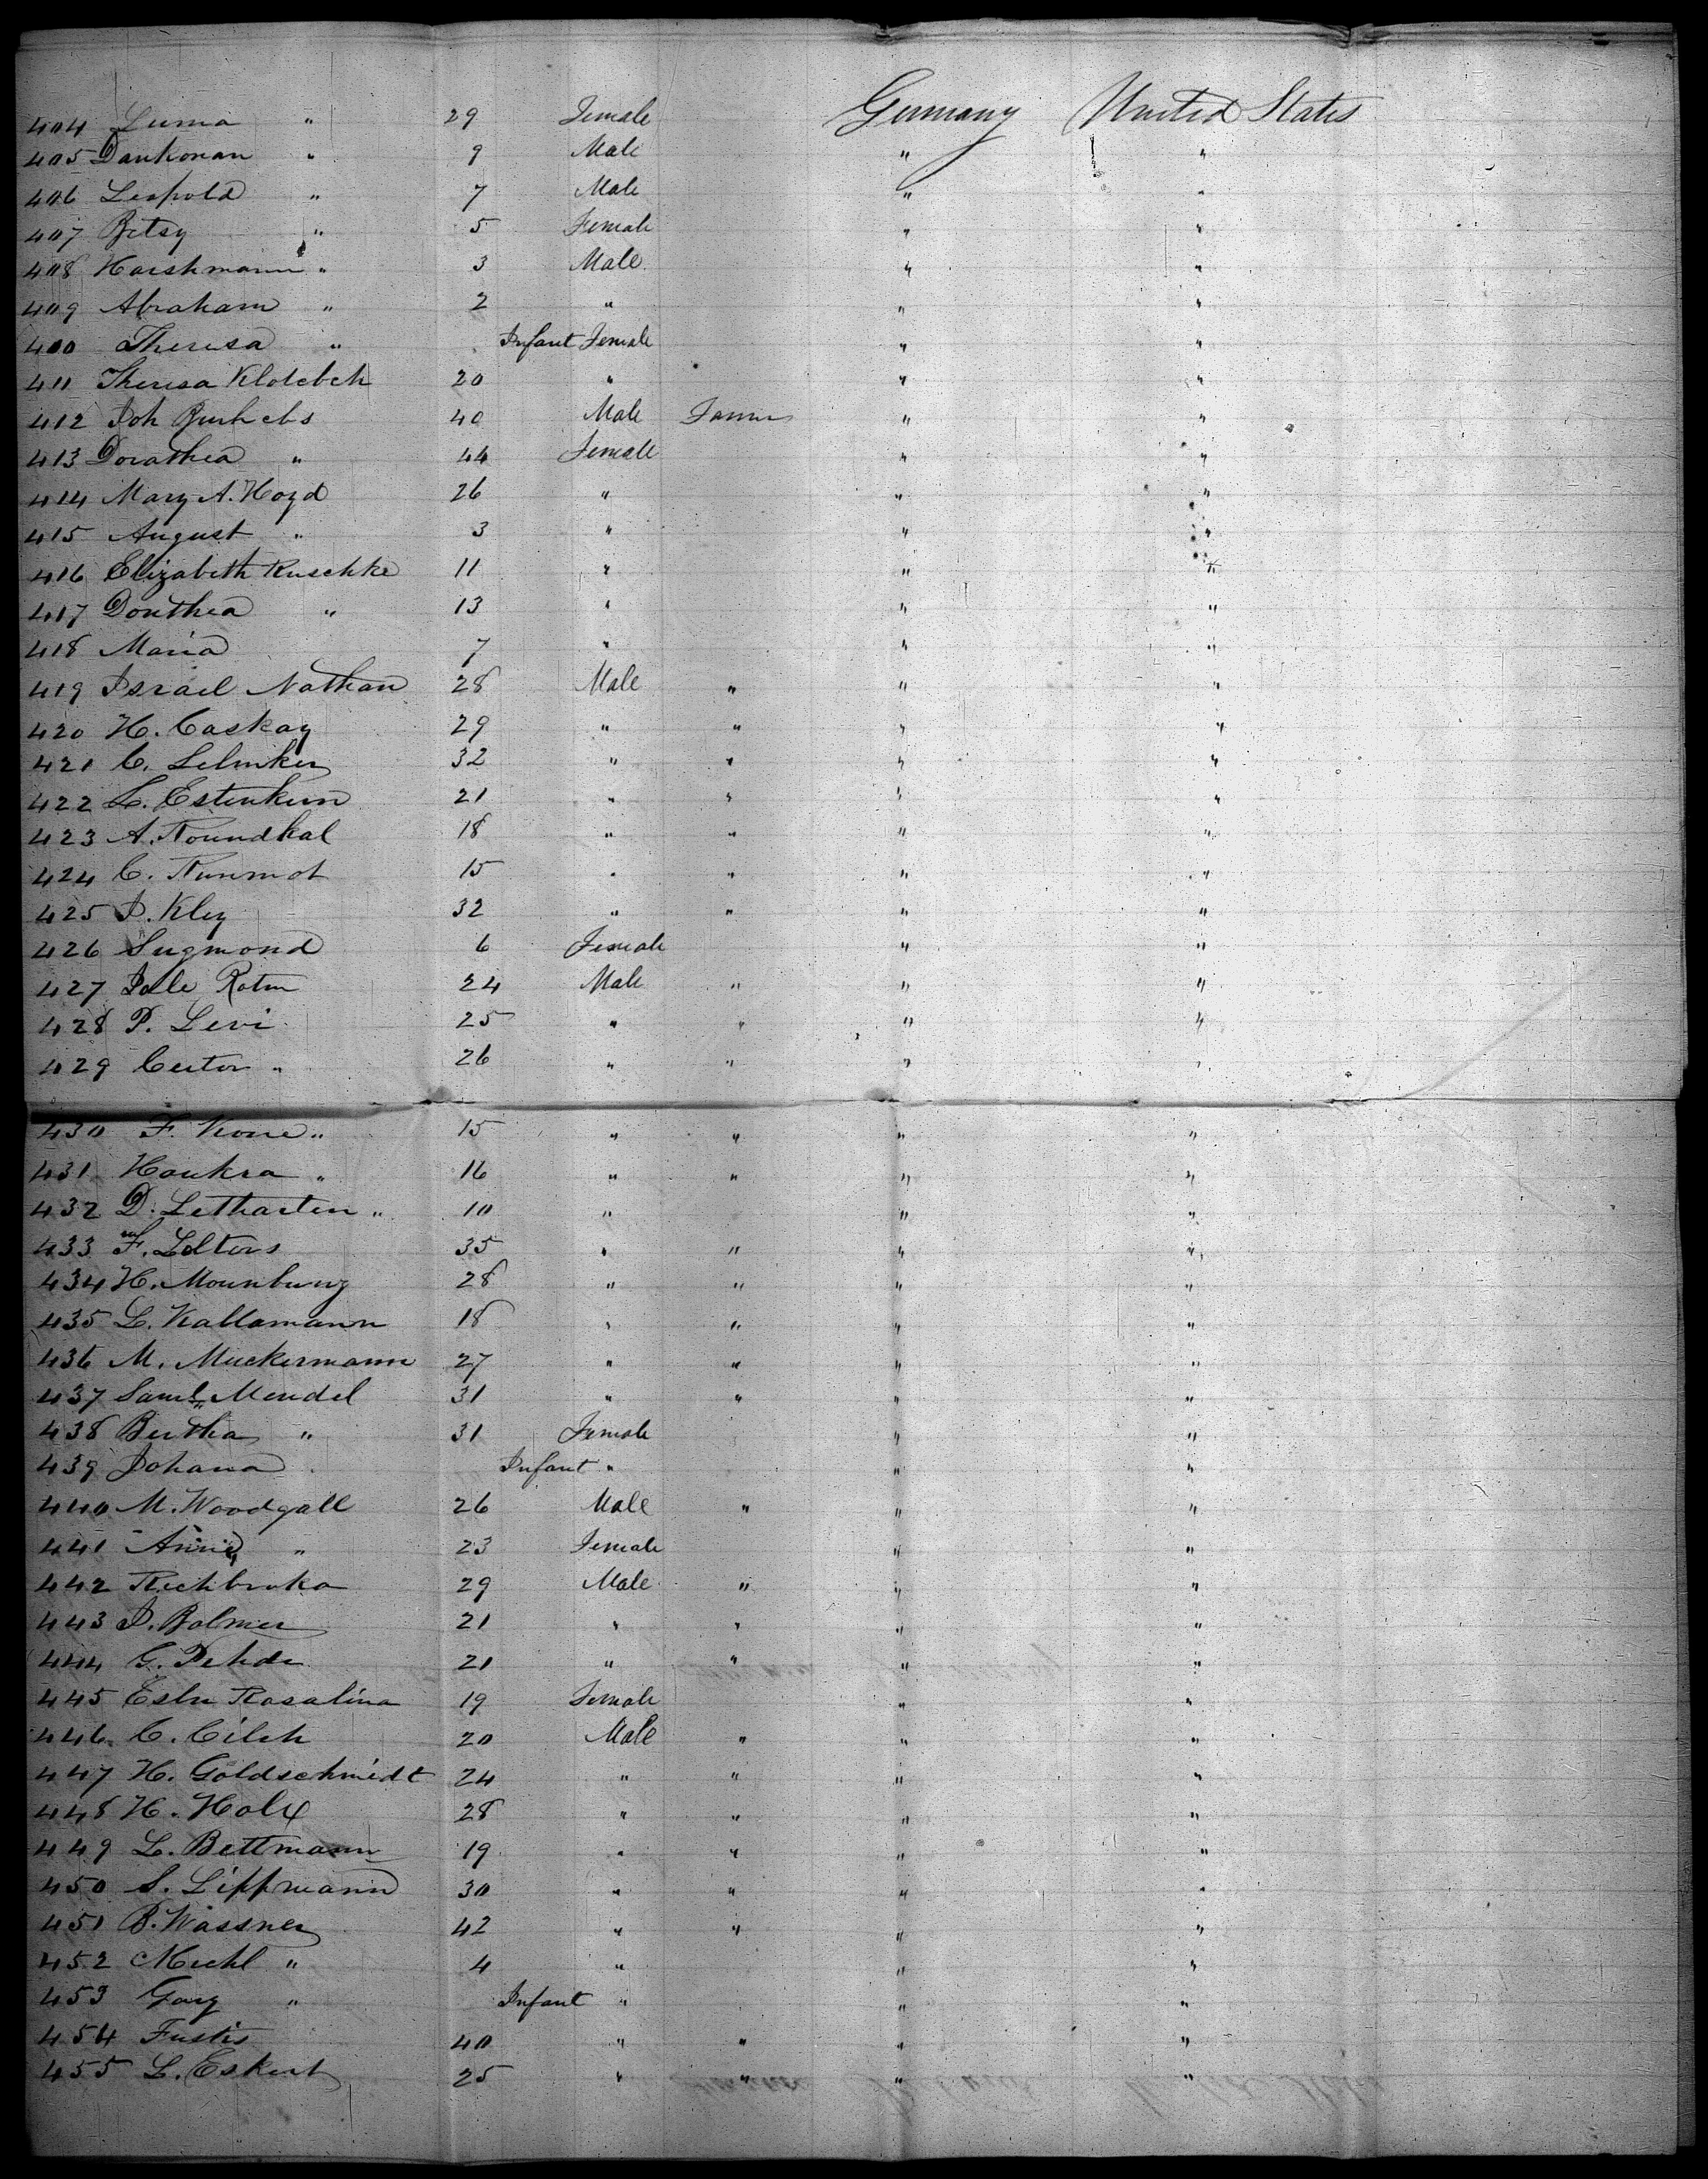 404 Luma " 29 Female Germany United States
405 Dankonan " 9 Male " "
406 Leopold " 7 Male " "
407 Betsy " 5 Female " "
408 Harshmann " 3 Male " "
409 Abraham " 2 " " "
400 Theresa " Infant Female " "
411 Theresa Klotebch 20 " " "
412 Joh 40 Male Farmer " "
413 Dorathea " 44 Female " "
414 Mary A. Hoyd 26 " " "
415 August " 3 " " "
416 Elizabeth Ruschke 11 " " "
417 Douthea " 13 " " "
418 Maria 7 " " "
419 Israel Nathan 28 Male " " "
420 H. Caskay 29 " " " "
421 C. Selmker 32 " " " "
422 L. Estenkum 21 " " " "
423 A. Roundkal 18 " " " "
424 C. Runmot 15 " " " "
425 J. Kley 32 " " " "
426 Sugmond 6 Female " "
427 Rotm 24 Male " " "
428 P. Levi 25 " " " "
429 " 26 " " " "
430 F. Kone " 15 " " " "
431 Haukra " 16 " " " "
432 D. Letharten " 10 " " "
433 F. 35 " " " "
434 H. Mounbung 28 " " " "
435 L. Kallamann 18 " " " "
436 M. Muckermann 27 " " " "
437 Saml Mendel 31 " " " "
438 Bertha " 31 Female " "
439 Johana Infant " " "
440 M. Woodgall 26 Male " " "
441 Annie " 23 Female " "
442 Richbroka 29 Male " " "
443 J. Bolmer 21 " " " "
444 G. Pehde 21 " " " "
445 Rosalina 19 Female " "
446 C. Cilch 20 Male " " "
447 H. Goldschmidt 24 " " " "
448 H. 28 " " " "
449 L. Bettmann 19 " " " "
450 S. Lippmann 30 " " " "
451 B. Wassner 42 " " " "
452 Michl " 4 " " "
453 Gorg " Infant " " "
454 Fustis 40 " " " "
455 L. Eskert 25 " " " "